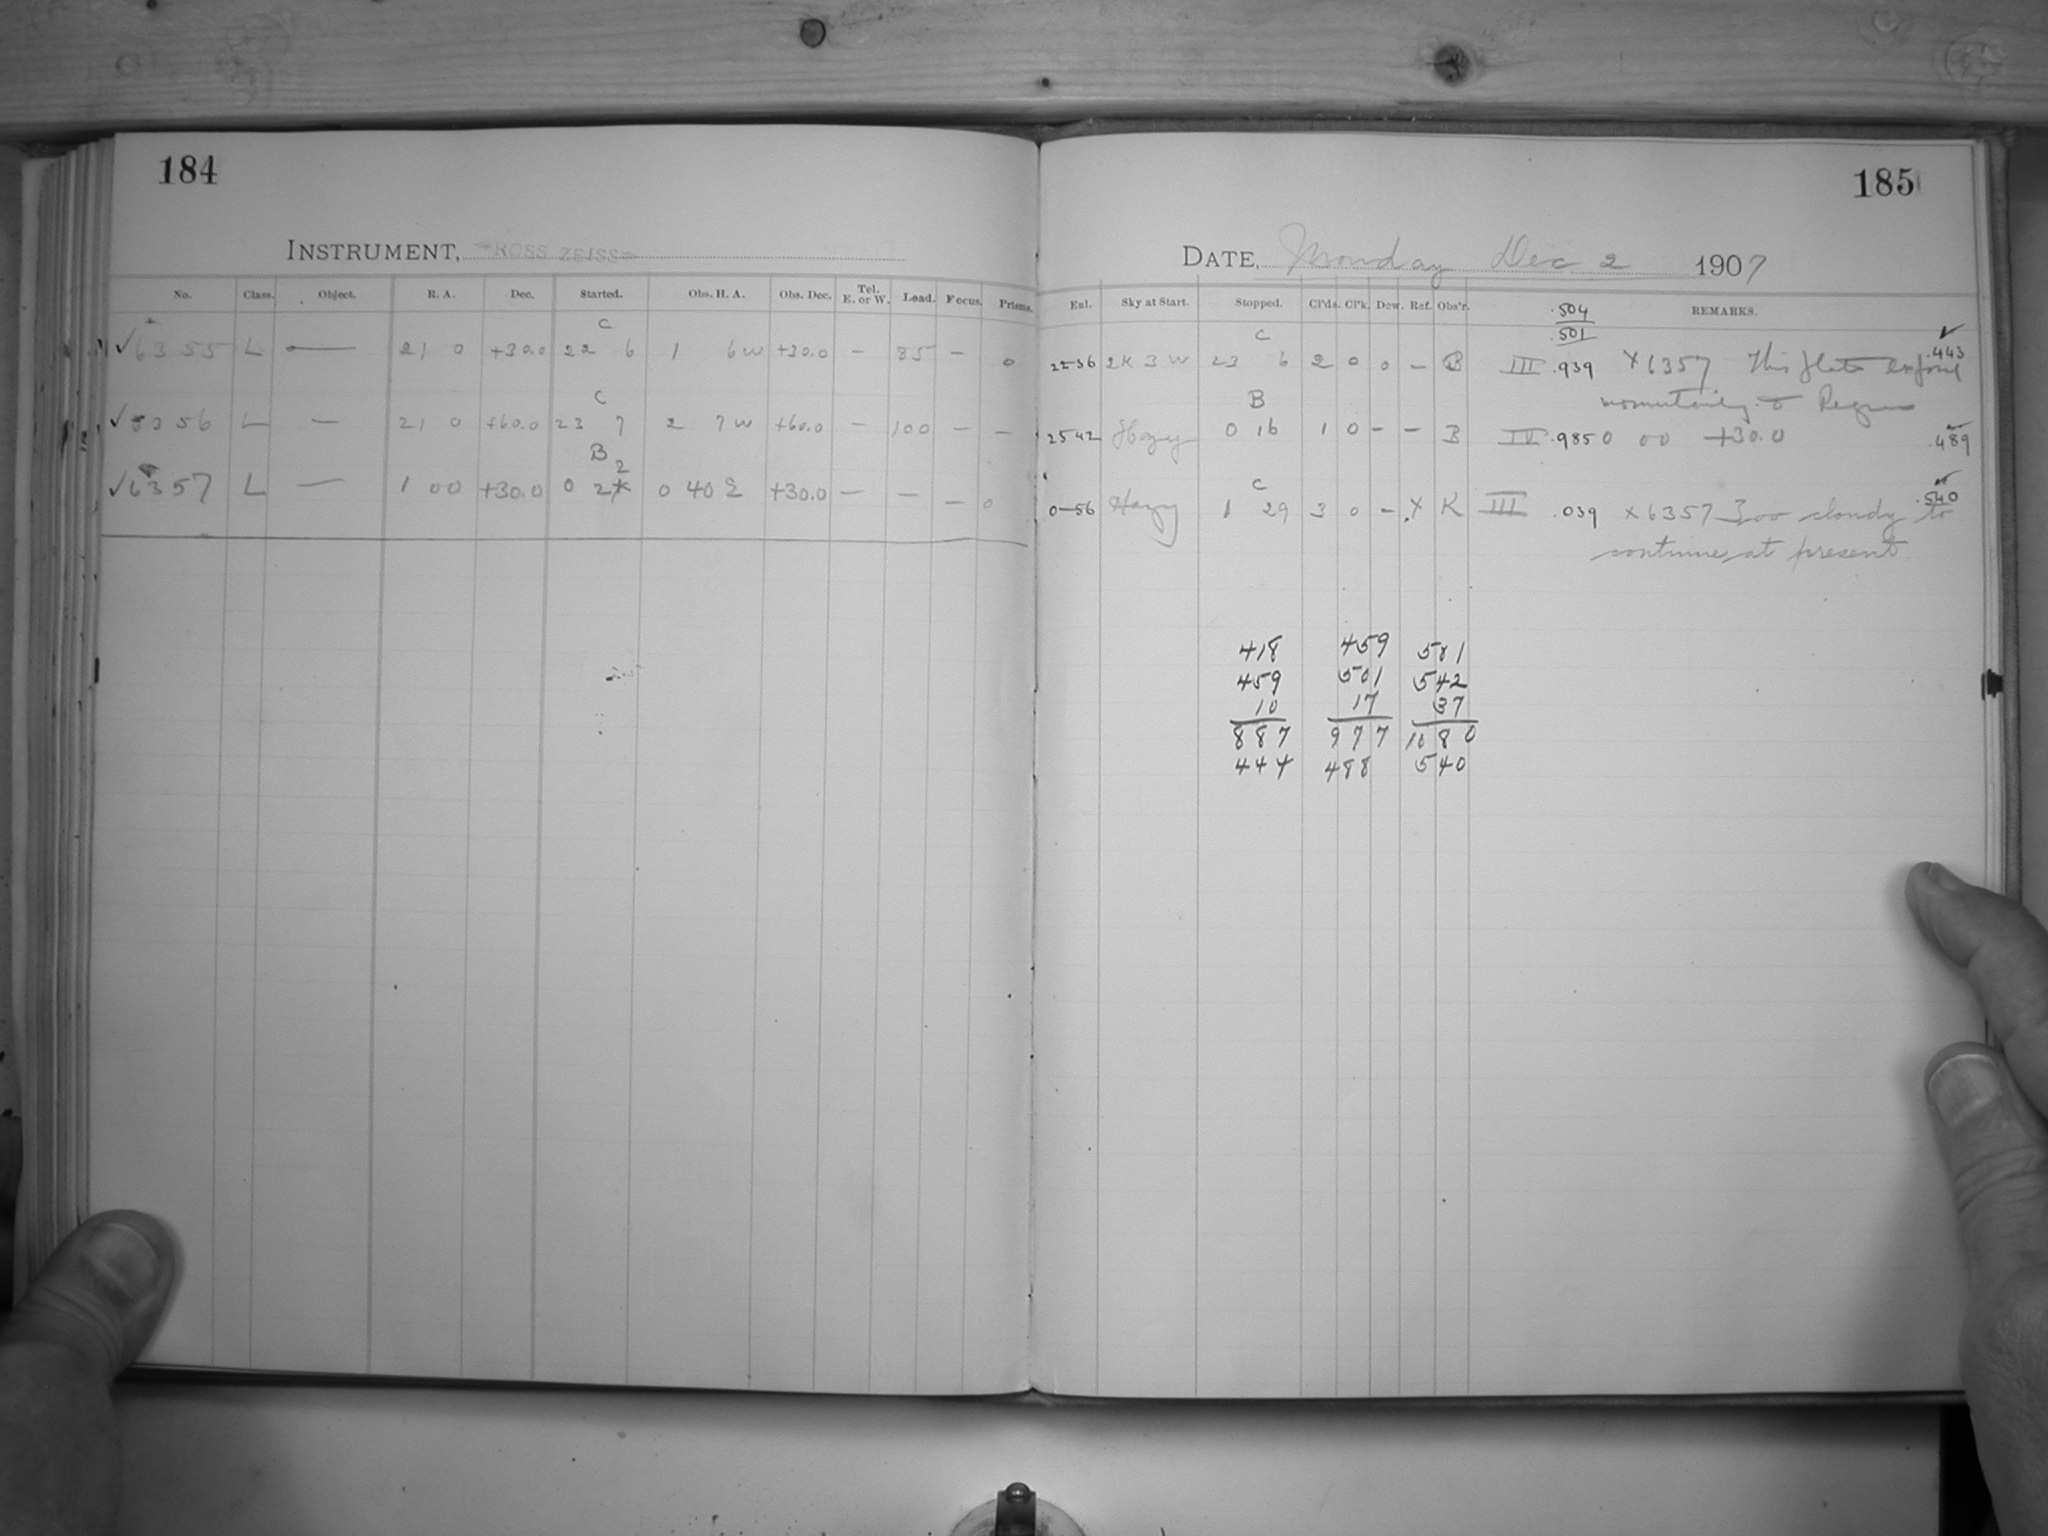 184
INSTRUMENT, ROSS ZEISS
No. Class. Object. R. A. Dec. Started. Obs. H. A. Obs. Dec. Tel. E. or W. Lead. Focus. Prisms.
C
✓6355 L — 21 0 +30.0 22 6 1 6W +30.0 — 85 — 0
C
✓6356 L — 21 0 +60.0 23 7 2 7W +60.0 — 100 — —
B 2
✓6357 L — 1 00 +30.0 0 2 0 40 E +30.0 — — — 0
185
DATE, Monday Dec 2 1907
Enl. Sky at Start. Stopped. Cl'ds. Cl'k. Dew. Ref. Obs'r. REMARKS.
.504
.501
C
2236 2K 3W 23 6 2 0 0 — B III .939 X6357 This plate .443
momentarily to
B
2542 Hazy 0 16 1 0 — — B IV .985 0 00 +30.0 .489
C
0-56 Hazy 1 29 3 0 — X K III .039 X6357 Too cloudy to .540
continue at present
418 459 501
459 501 542
10 17 37
887 977 1080
444 488 540